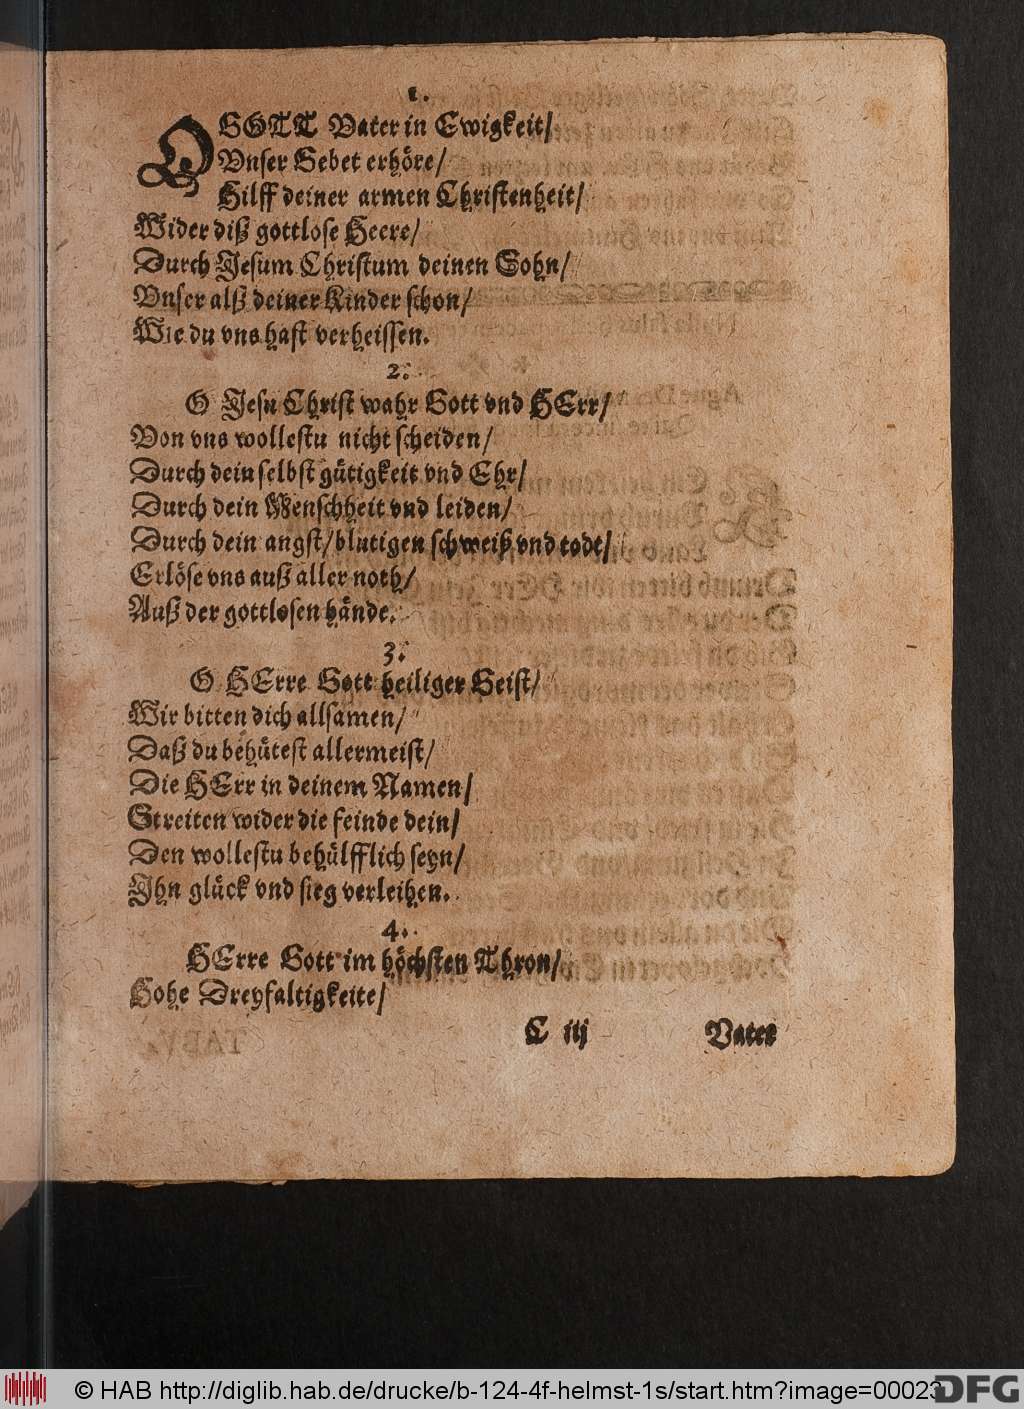 1.
O GOTT Vater in Ewigkeit/
Vnser Gebet erhöre/
Hilff deiner armen Christenheit/
Wider diß gottlose Heere/
Durch Jesum Christum deinen Sohn/
Vnser alß deiner Kinder schon/
Wie du vns hast verheissen.
2.
O Jesu Christ wahr Gott vnd HErr/
Von vns wollestu nicht scheiden/
Durch dein selbst gütigkeit vnd Ehr/
Durch dein Menschheit vnd leiden/
Durch dein angst/blutigen schweiß vnd todt/
Erlöse vns auß aller noth/
Auß der gottlosen hände.
3.
O HErre Gott heiliger Geist/
Wir bitten dich allsamen/
Daß du behütest allermeist/
Die HErr in deinem Namen/
Streiten wider die feinde dein/
Den wollestu behülfflich seyn/
Ihn glück vnd sieg verleihen.
4.
HErre Gott im höchsten Thron/
Hohe Dreyfaltigkeite/
C iij Vater
© HAB http://diglib.hab.de/drucke/b-124-4f-helmst-1s/start.htm?image=00023
DFG